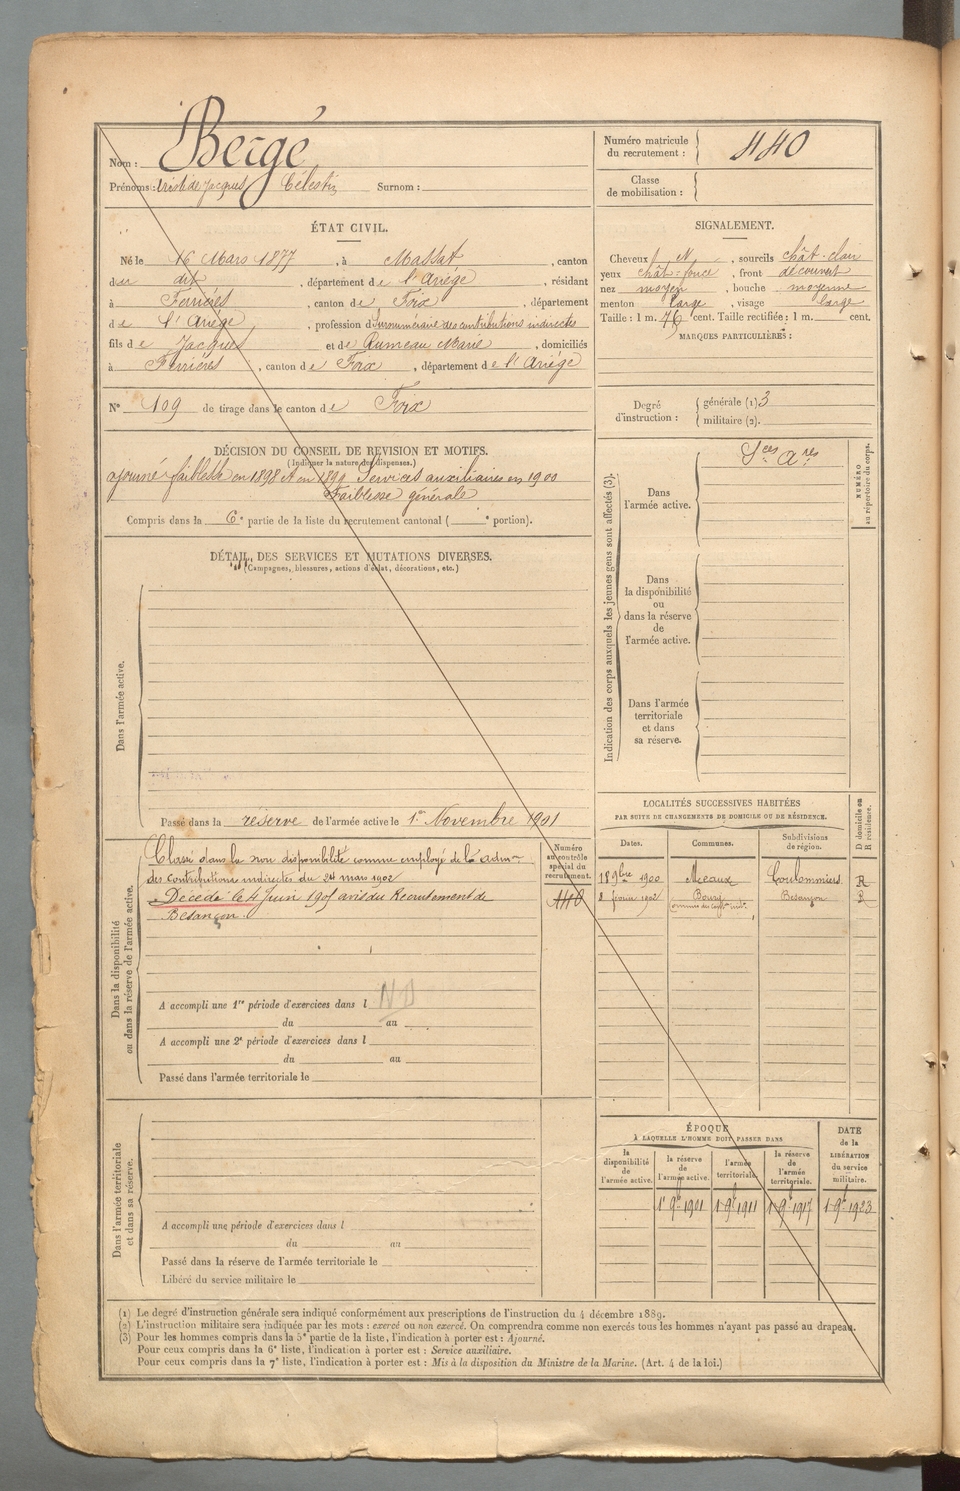 Nom : Bergé
Prénoms : Aristide Jacques Célestin Surnom :
Numéro matricule du recrutement : 440
Classe de mobilisation :
ÉTAT CIVIL.
Né le 16 Mars 1877, à Massat, canton
du dit, département de l'Ariège, résidant
à Ferrières, canton de Foix, département
de l'Ariège, profession Surnuméraire des contributions indirectes
fils de Jacques et de Rumeau Marie, domiciliés
à Ferrières, canton de Foix, département de l'Ariège
N° 109 de tirage dans le canton de Foix
SIGNALEMENT.
Cheveux N, sourcils chât-clair
yeux chât-foncé, front découvert
nez moyen, bouche moyenne
menton large, visage large
Taille : 1 m. 76 cent. Taille rectifiée : 1 m. cent.
MARQUES PARTICULIÈRES :
Degré d'instruction : générale (1) 3
militaire (2).
DÉCISION DU CONSEIL DE REVISION ET MOTIFS.
(Indiquer la nature des dispenses.)
ajourné faiblesse en 1898 et en 1899 Services auxiliaires en 1900
Faiblesse générale
Compris dans la 6e partie de la liste du recrutement cantonal ( e portion).
DÉTAIL DES SERVICES ET MUTATIONS DIVERSES.
(Campagnes, blessures, actions d'éclat, décorations, etc.)
Dans l'armée active.
Passé dans la réserve de l'armée active le 1er Novembre 1901
Indication des corps auxquels les jeunes gens sont affectés (3).
Dans l'armée active.
Sces Ares
NUMÉRO au répertoire du corps.
Dans la disponibilité ou dans la réserve de l'armée active.
Dans l'armée territoriale et dans sa réserve.
Dans la disponibilité ou dans la réserve de l'armée active.
Numéro au contrôle spécial du recrutement.
Classé dans la non disponibilité comme employé de l'adm-
des contributions indirectes du 24 mars 1902
Décédé le 4 Juin 1905 avis du Recrutement de
Besançon.
440
A accompli une 1re période d'exercices dans l ND
du au
A accompli une 2e période d'exercices dans l
du au
Passé dans l'armée territoriale le
LOCALITÉS SUCCESSIVES HABITÉES
PAR SUITE DE CHANGEMENTS DE DOMICILE OU DE RÉSIDENCE.
Dates. Communes. Subdivisions de région. D domicile ou R résidence.
18 9bre 1900 Meaux Coulommiers R
8 février 1902 Besançon R
Dans l'armée territoriale et dans sa réserve.
A accompli une période d'exercices dans l
du au
Passé dans la réserve de l'armée territoriale le
Libéré du service militaire le
ÉPOQUE
À LAQUELLE L'HOMME DOIT PASSER DANS
la disponibilité de l'armée active. la réserve de l'armée active. l'armée territoriale. la réserve de l'armée territoriale.
DATE de la LIBÉRATION du service militaire.
1er 9bre 1901 1er 9bre 1911 1er 9bre 1917 1er 9bre 1923
(1) Le degré d'instruction générale sera indiqué conformément aux prescriptions de l'instruction du 4 décembre 1889.
(2) L'instruction militaire sera indiquée par les mots : exercé ou non exercé. On comprendra comme non exercés tous les hommes n'ayant pas passé au drapeau.
(3) Pour les hommes compris dans la 5e partie de la liste, l'indication à porter est : Ajourné.
Pour ceux compris dans la 6e liste, l'indication à porter est : Service auxiliaire.
Pour ceux compris dans la 7e liste, l'indication à porter est : Mis à la disposition du Ministre de la Marine. (Art. 4 de la loi.)